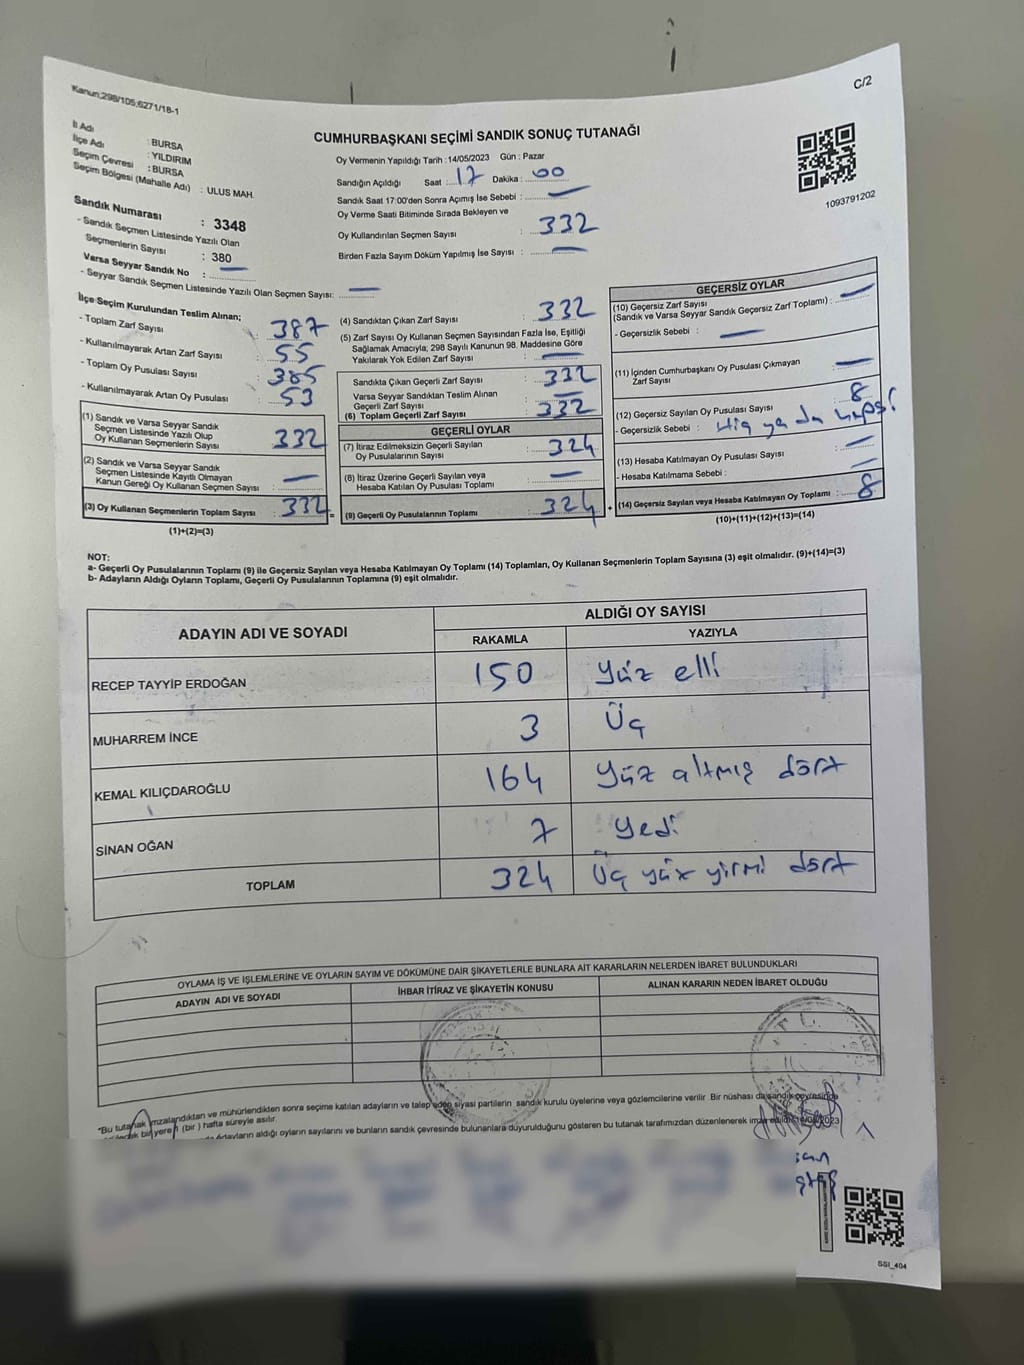 Kanun;298/105;6271/18-1
C/2
CUMHURBAŞKANI SEÇİMİ SANDIK SONUÇ TUTANAĞI
İl Adı : BURSA
İlçe Adı : YILDIRIM
Seçim Çevresi : BURSA
Seçim Bölgesi (Mahalle Adı) : ULUS MAH.
Sandık Numarası : 3348
- Sandık Seçmen Listesinde Yazılı Olan
Seçmenlerin Sayısı : 380
Varsa Seyyar Sandık No : —
- Seyyar Sandık Seçmen Listesinde Yazılı Olan Seçmen Sayısı: —
Oy Vermenin Yapıldığı Tarih : 14/05/2023 Gün : Pazar
Sandığın Açıldığı Saat : 17 Dakika : 00
Sandık Saat 17:00'den Sonra Açımış İse Sebebi : —
Oy Verme Saati Bitiminde Sırada Bekleyen ve
Oy Kullandırılan Seçmen Sayısı : 332
Birden Fazla Sayım Döküm Yapılmış İse Sayısı : —
1093791202
İlçe Seçim Kurulundan Teslim Alınan;
- Toplam Zarf Sayısı : 387
- Kullanılmayarak Artan Zarf Sayısı : 55
- Toplam Oy Pusulası Sayısı : 385
- Kullanılmayarak Artan Oy Pusulası : 53
(1) Sandık ve Varsa Seyyar Sandık
Seçmen Listesinde Yazılı Olup
Oy Kullanan Seçmenlerin Sayısı : 332
(2) Sandık ve Varsa Seyyar Sandık
Seçmen Listesinde Kayıtlı Olmayan
Kanun Gereği Oy Kullanan Seçmen Sayısı : —
(3) Oy Kullanan Seçmenlerin Toplam Sayısı : 332
(1)+(2)=(3)
(4) Sandıktan Çıkan Zarf Sayısı : 332
(5) Zarf Sayısı Oy Kullanan Seçmen Sayısından Fazla İse, Eşitliği
Sağlamak Amacıyla, 298 Sayılı Kanunun 98. Maddesine Göre
Yakılarak Yok Edilen Zarf Sayısı : —
Sandıkta Çıkan Geçerli Zarf Sayısı : 332
Varsa Seyyar Sandıktan Teslim Alınan
Geçerli Zarf Sayısı : —
(6) Toplam Geçerli Zarf Sayısı : 332
GEÇERLİ OYLAR
(7) İtiraz Edilmeksizin Geçerli Sayılan
Oy Pusulalarının Sayısı : 324
(8) İtiraz Üzerine Geçerli Sayılan veya
Hesaba Katılan Oy Pusulası Toplamı : —
= (9) Geçerli Oy Pusulalarının Toplamı : 324
GEÇERSİZ OYLAR
(10) Geçersiz Zarf Sayısı
(Sandık ve Varsa Seyyar Sandık Geçersiz Zarf Toplamı) : —
- Geçersizlik Sebebi : —
(11) İçinden Cumhurbaşkanı Oy Pusulası Çıkmayan
Zarf Sayısı : —
(12) Geçersiz Sayılan Oy Pusulası Sayısı : 8
- Geçersizlik Sebebi : Hiç ya da hepsi
(13) Hesaba Katılmayan Oy Pusulası Sayısı : —
- Hesaba Katılmama Sebebi : —
+ (14) Geçersiz Sayılan veya Hesaba Katılmayan Oy Toplamı : 8
(10)+(11)+(12)+(13)=(14)
NOT:
a- Geçerli Oy Pusulalarının Toplamı (9) ile Geçersiz Sayılan veya Hesaba Katılmayan Oy Toplamı (14) Toplamları, Oy Kullanan Seçmenlerin Toplam Sayısına (3) eşit olmalıdır. (9)+(14)=(3)
b- Adayların Aldığı Oyların Toplamı, Geçerli Oy Pusulalarının Toplamına (9) eşit olmalıdır.
ADAYIN ADI VE SOYADI
ALDIĞI OY SAYISI
RAKAMLA YAZIYLA
RECEP TAYYİP ERDOĞAN 150 Yüz elli
MUHARREM İNCE 3 Üç
KEMAL KILIÇDAROĞLU 164 Yüz altmış dört
SİNAN OĞAN 7 Yedi
TOPLAM 324 Üç yüz yirmi dört
OYLAMA İŞ VE İŞLEMLERİNE VE OYLARIN SAYIM VE DÖKÜMÜNE DAİR ŞİKAYETLERLE BUNLARA AİT KARARLARIN NELERDEN İBARET BULUNDUKLARI
ADAYIN ADI VE SOYADI
İHBAR İTİRAZ VE ŞİKAYETİN KONUSU
ALINAN KARARIN NEDEN İBARET OLDUĞU
*Bu tutanak imzalandıktan ve mühürlendikten sonra seçime katılan adayların ve talep eden siyasi partilerin sandık kurulu üyelerine veya gözlemcilerine verilir. Bir nüshası da sandık çevresinde
bir yere (bir) hafta süreyle asılır.
adayların aldığı oyların sayılarını ve bunların sandık çevresinde bulunanlara duyurulduğunu gösteren bu tutanak tarafımızdan düzenlenerek
SSI_404